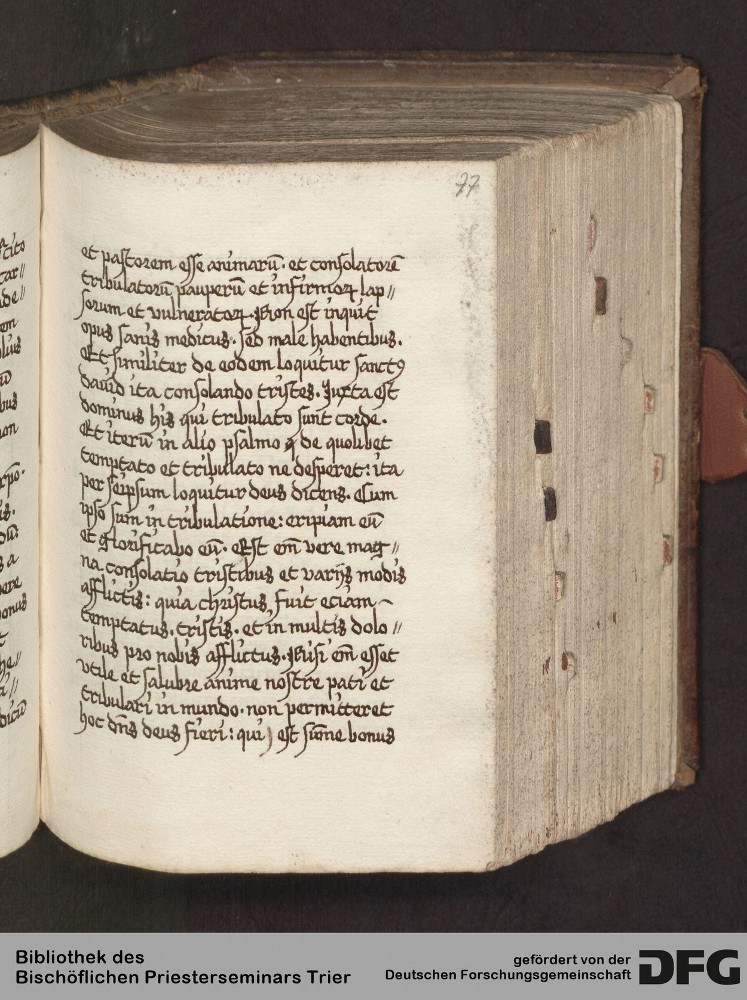 77
et pastorem esse animarū. et consolatorē
tribulatorū pauperū et infirmoꝝ lap//
sorum et vulneratoꝝ. Non est inquit
opus sanis medicus. sed male habentibus.
Et similiter de eodem loquitur sanctꝰ
dauid ita consolando tristes. Juxta est
dominus his qui tribulato sunt corde.
Et iterū in alio psalmo de quolibet
temptato et tribulato ne desperet: ita
per seipsum loquitur deus dicens. Cum
ipso sum in tribulatione: eripiam eū
et glorificabo eū. Est em̄ vere mag//
na consolatio tristibus et varijs modis
afflictis: quia christus fuit eciam
temptatus. tristis. et in multis dolo//
ribus pro nobis afflictus. Nisi em̄ esset
vtile et salubre anime nostre pati et
tribulari in mundo. non permitteret
hoc dn̄s deus fieri: qui est sūme bonus
Bibliothek des
Bischöflichen Priesterseminars Trier
gefördert von der
Deutschen Forschungsgemeinschaft
DFG